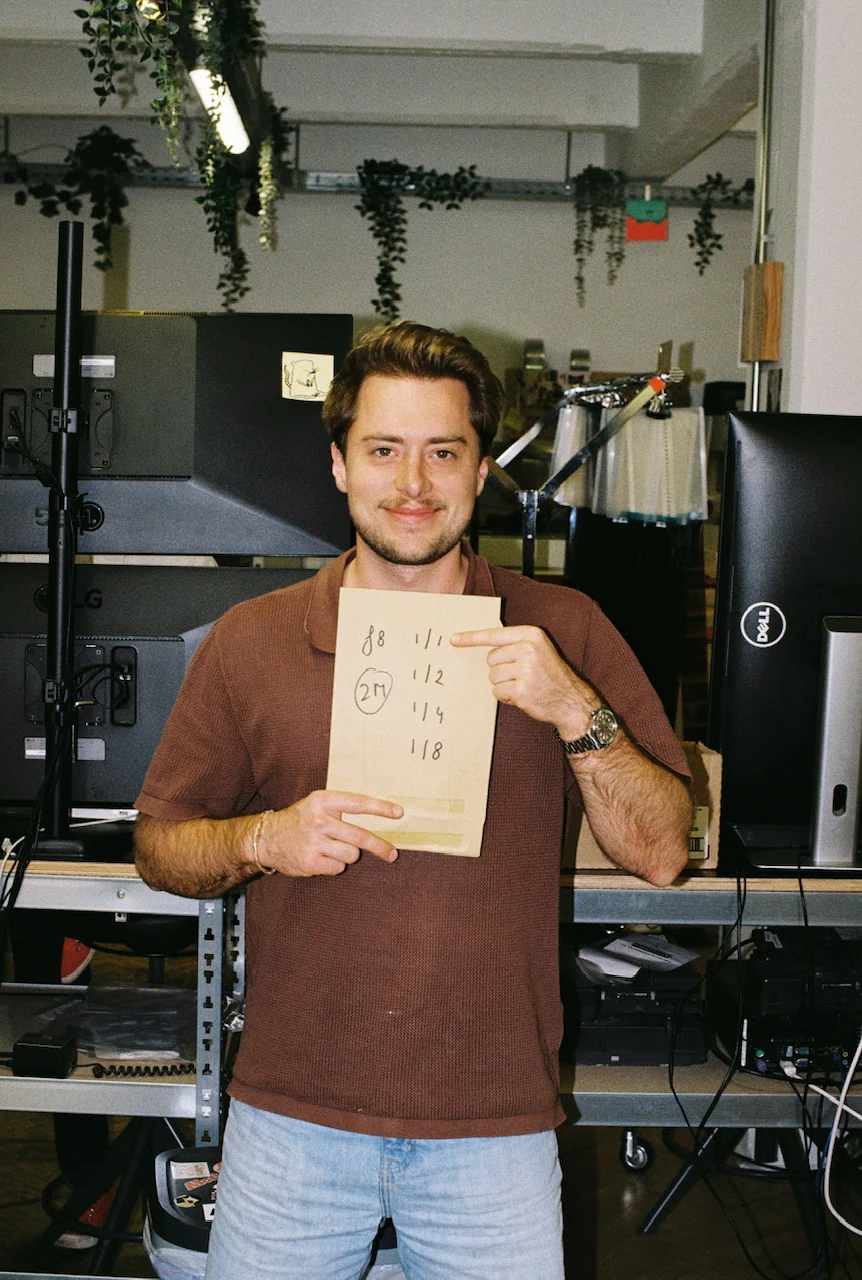 f8 1/1
2M 1/2
1/4
1/8
DELL
LG